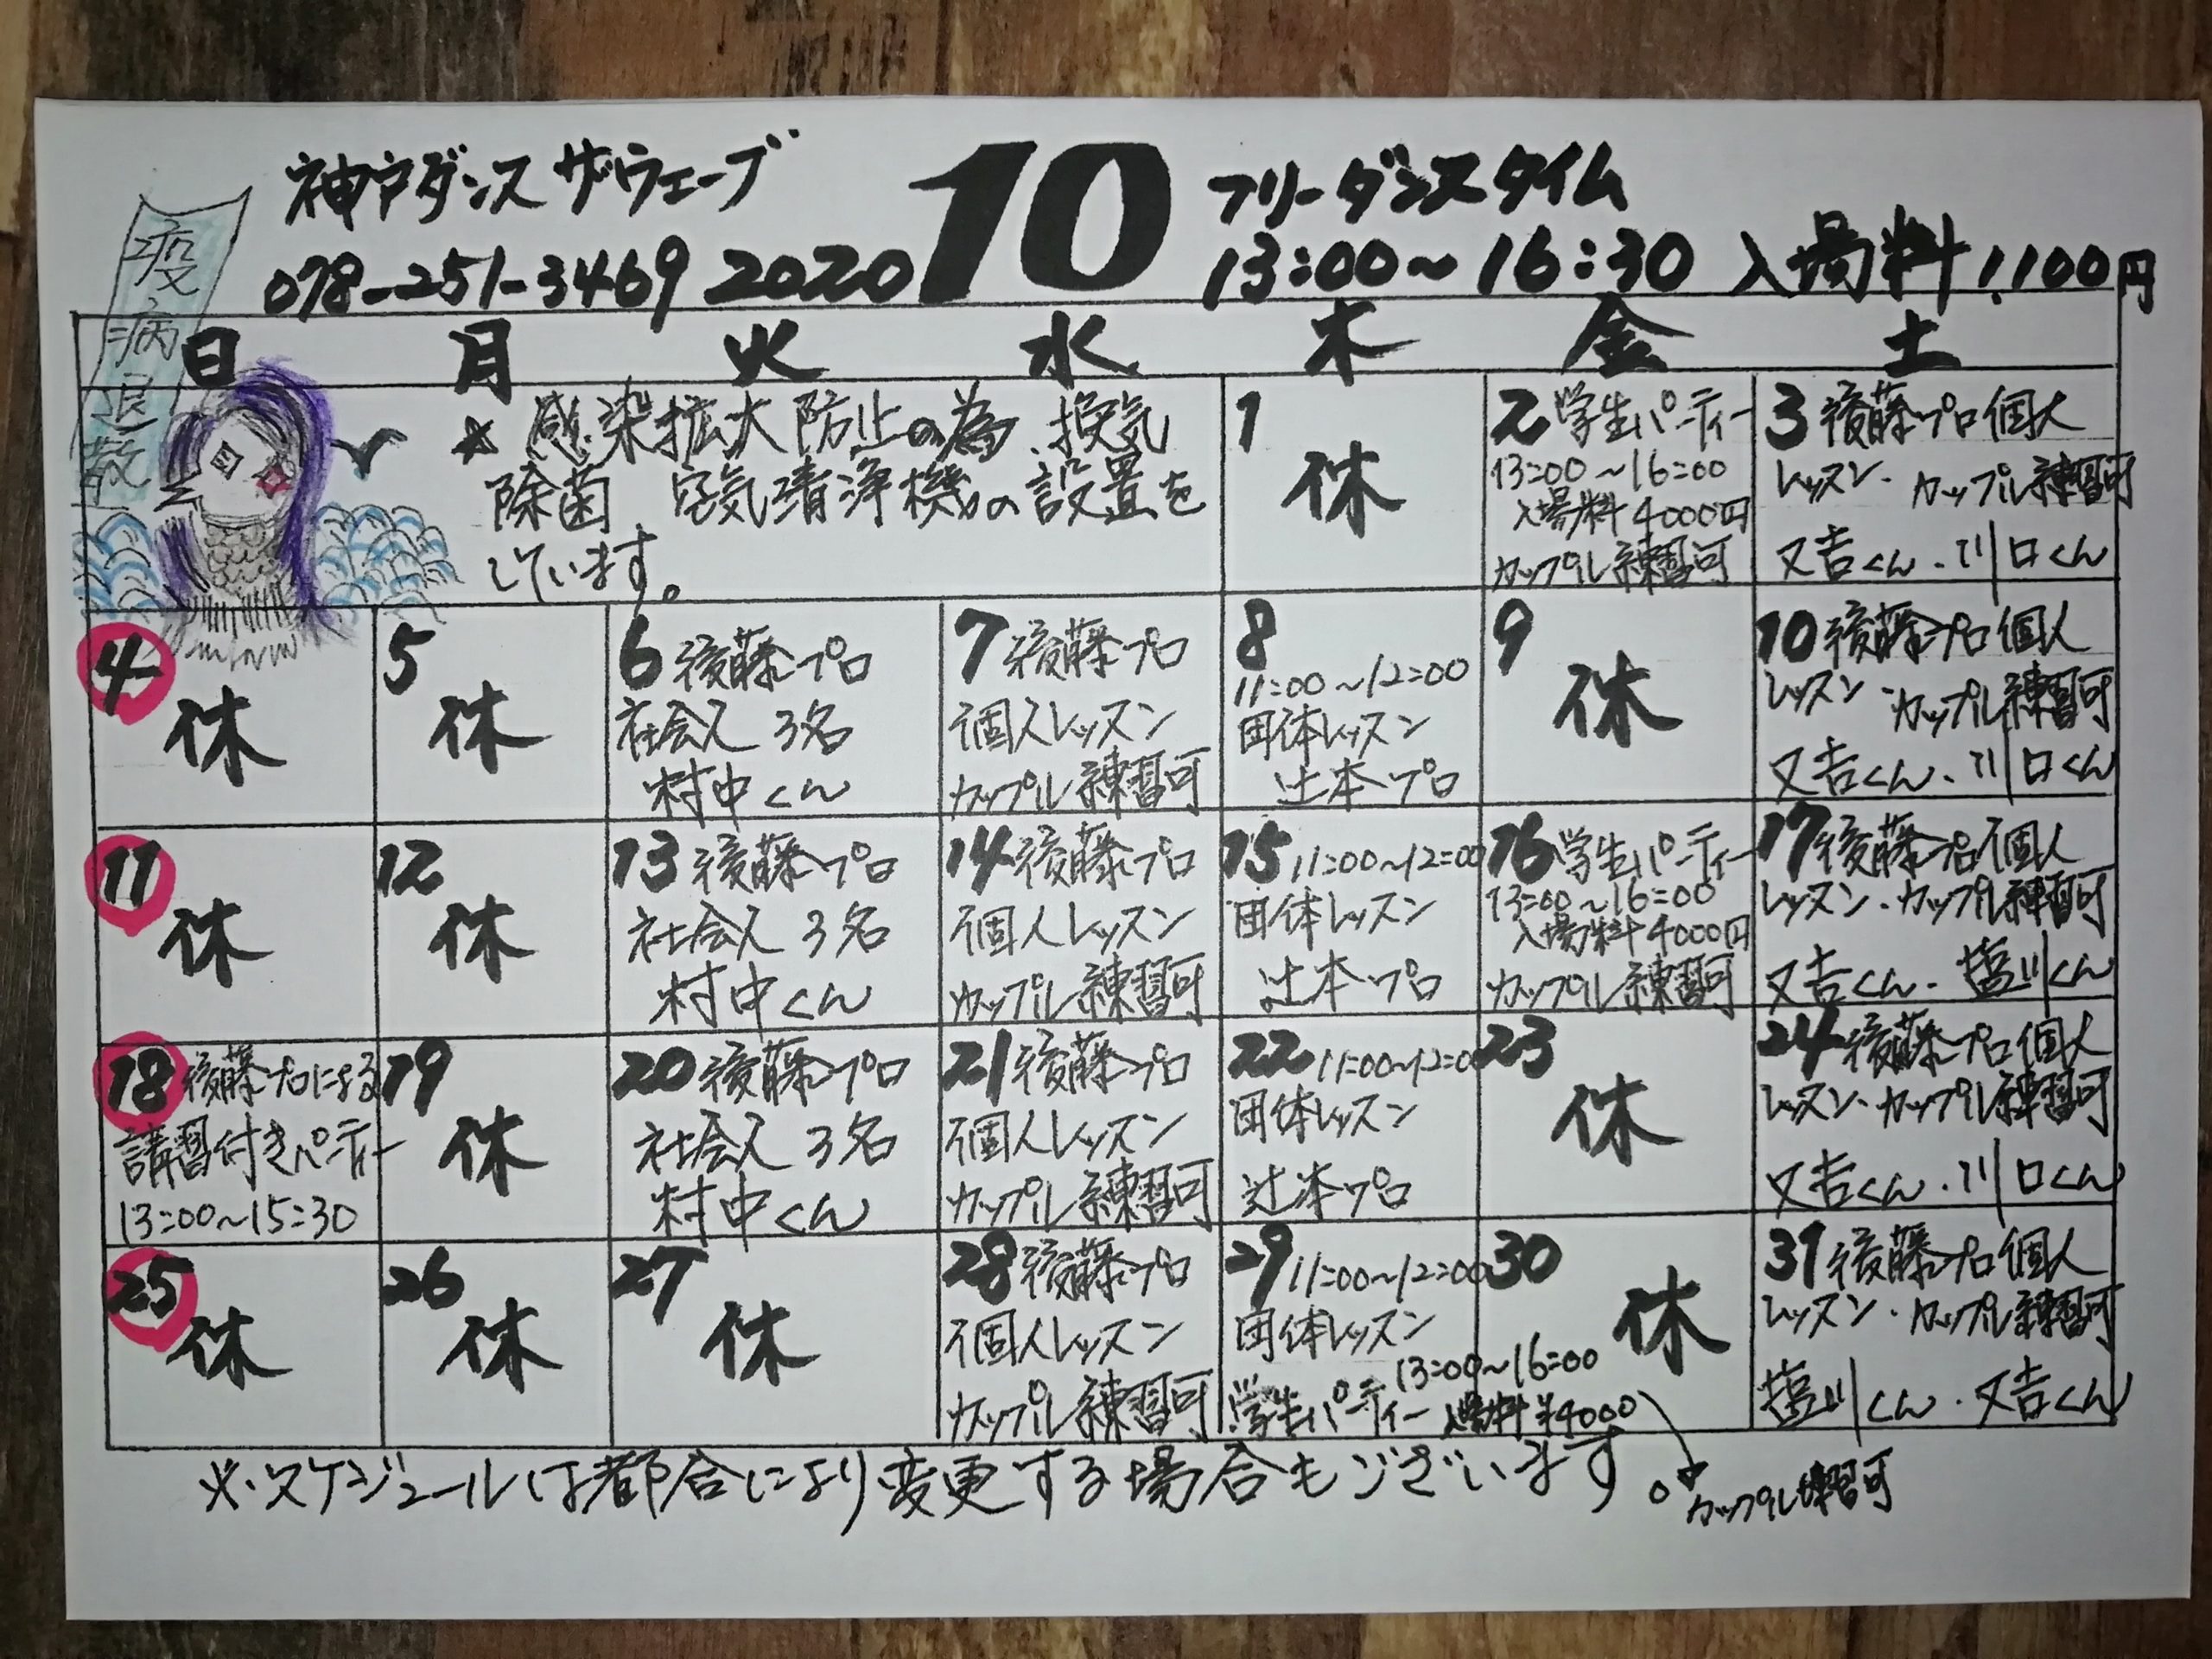 神戸ダンス ザ・ウェーブ
078-251-3469 2020 10
フリーダンスタイム
13:00～16:30 入場料1,100円
疫病退散
日 月 火 水 木 金 土
☆ 感染拡大防止の為、換気
除菌 空気清浄機の設置を
しています。
1
休
2 学生パーティー
13:00～16:00
入場料4000円
カップル練習可
3 後藤プロ個人
レッスン・カップル練習可
又吉くん・川口くん
4
休
5
休
6 後藤プロ
社会人 3名
村中くん
7 後藤プロ
個人レッスン
カップル練習可
8
11:00～12:00
団体レッスン
辻本プロ
9
休
10 後藤プロ個人
レッスン・カップル練習可
又吉くん・川口くん
11
休
12
休
13 後藤プロ
社会人 3名
村中くん
14 後藤プロ
個人レッスン
カップル練習可
15 11:00～12:00
団体レッスン
辻本プロ
16 学生パーティー
13:00～16:00
入場料4000円
カップル練習可
17 後藤プロ個人
レッスン・カップル練習可
又吉くん・塩川くん
18 後藤プロによる
講習付きパーティー
13:00～15:30
19
休
20 後藤プロ
社会人 3名
村中くん
21 後藤プロ
個人レッスン
カップル練習可
22 11:00～12:00
団体レッスン
辻本プロ
23
休
24 後藤プロ個人
レッスン・カップル練習可
又吉くん・川口くん
25
休
26
休
27
休
28 後藤プロ
個人レッスン
カップル練習可
29 11:00～12:00
団体レッスン
13:00～16:00
学生パーティー 入場料¥4000
カップル練習可
30
休
31 後藤プロ個人
レッスン・カップル練習可
塩川くん・又吉くん
※・スケジュールは都合により変更する場合もございます。